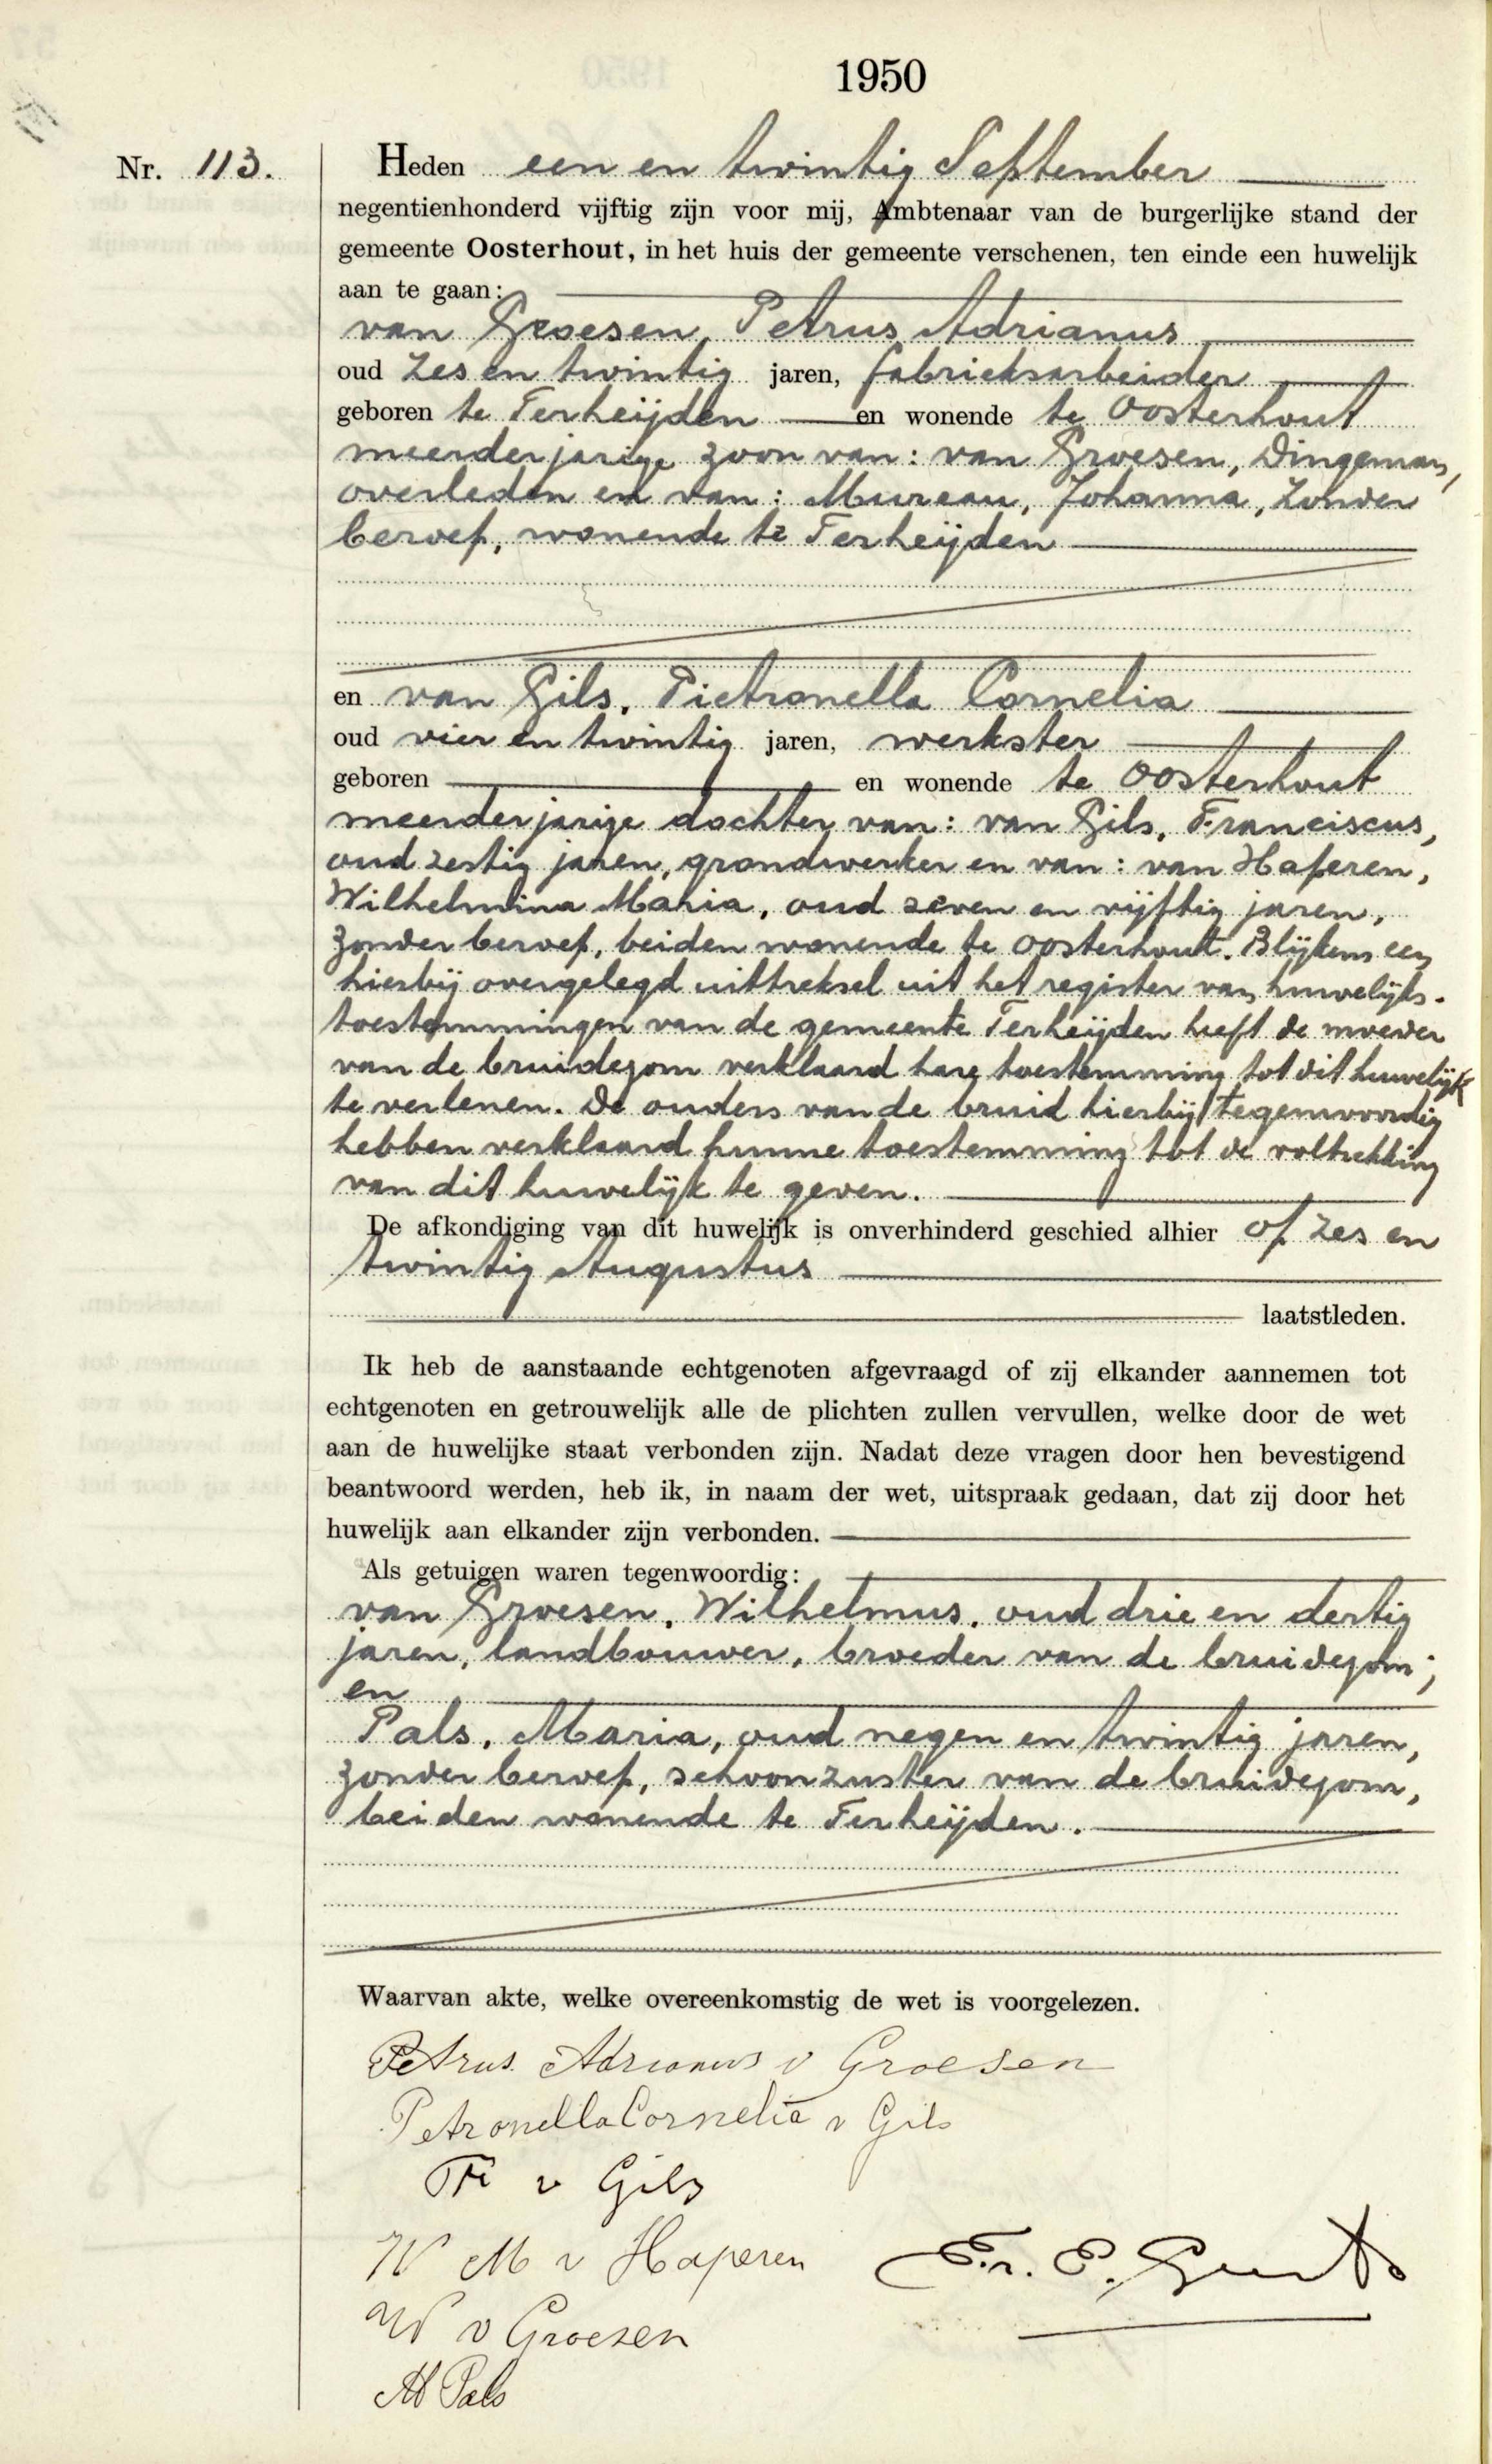 1950
Nr. 113.
Heden een en twintig September
negentienhonderd vijftig zijn voor mij, Ambtenaar van de burgerlijke stand der
gemeente Oosterhout, in het huis der gemeente verschenen, ten einde een huwelijk
aan te gaan:
van Groesen, Petrus Adrianus
oud zes en twintig jaren, fabrieksarbeider
geboren te Terheijden en wonende te Oosterhout
meerderjarige zoon van: van Groesen, Dingeman,
overleden en van: Mureau, Johanna, zonder
beroep, wonende te Terheijden
en van Gils, Pietronella Cornelia
oud vier en twintig jaren, werkster
geboren en wonende te Oosterhout
meerderjarige dochter van: van Gils, Franciscus,
oud zestig jaren, grondwerker en van: van Haperen,
Wilhelmina Maria, oud zeven en vijftig jaren,
zonder beroep, beiden wonende te Oosterhout. Blijkens een
hierbij overgelegd uittreksel uit het register van huwelijks-
toestemmingen van de gemeente Terheijden heeft de moeder
van de bruidegom verklaard hare toestemming tot dit huwelijk
te verlenen. De ouders van de bruid hierbij tegenwoordig
hebben verklaard hunne toestemming tot de voltrekking
van dit huwelijk te geven.
De afkondiging van dit huwelijk is onverhinderd geschied alhier op zes en
twintig Augustus
laatstleden.
Ik heb de aanstaande echtgenoten afgevraagd of zij elkander aannemen tot
echtgenoten en getrouwelijk alle de plichten zullen vervullen, welke door de wet
aan de huwelijke staat verbonden zijn. Nadat deze vragen door hen bevestigend
beantwoord werden, heb ik, in naam der wet, uitspraak gedaan, dat zij door het
huwelijk aan elkander zijn verbonden.
Als getuigen waren tegenwoordig:
van Groesen, Wilhelmus, oud drie en dertig
jaren, landbouwer, broeder van de bruidegom;
en
Pals, Maria, oud negen en twintig jaren,
zonder beroep, schoonzuster van de bruidegom,
beiden wonende te Terheijden.
Waarvan akte, welke overeenkomstig de wet is voorgelezen.
Petrus Adrianus v Groesen
Petronella Cornelia v Gils
Fr v Gils
W M v Haperen
W v Groesen
M Pals